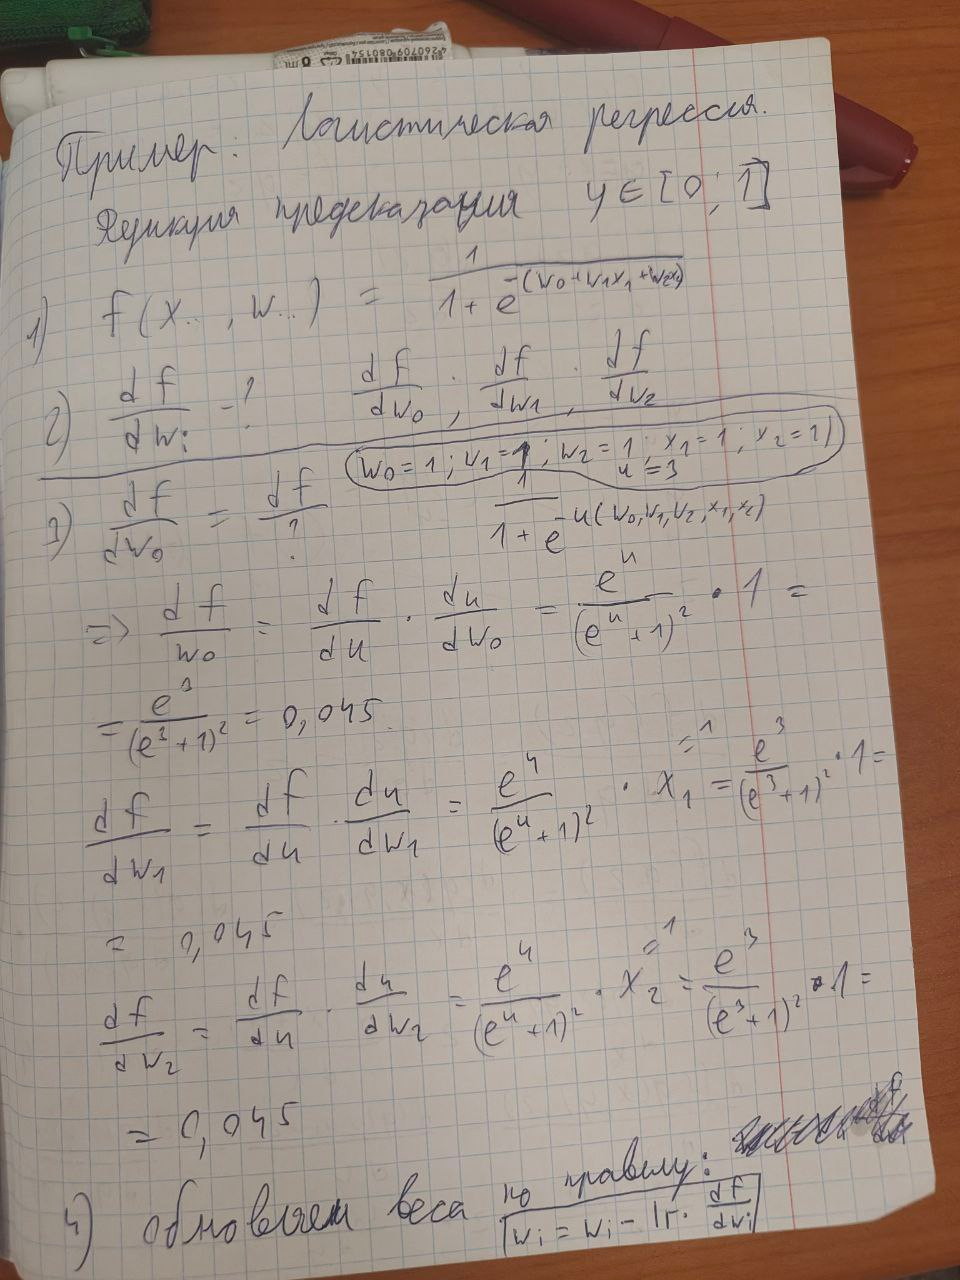 4260709 080154
8 ml
Пример: Логистическая регрессия.
Функция предсказания y ∈ [0; 1]
1) f(x.., w...) = 1 / (1 + e^-(w0+w1x1+w2x2))
2) df/dwi - ? df/dw0, df/dw1, df/dw2
(w0 = 1; w1 = 1; w2 = 1; x1 = 1; x2 = 1)
u = 3
3) df/dw0 = df/? 1 / (1 + e^-u(w0, w1, w2, x1, x2))
=> df/w0 = df/du · du/dw0 = e^u/(e^u+1)^2 · 1 =
= e^3/(e^3+1)^2 = 0,045.
df/dw1 = df/du · du/dw1 = e^u/(e^u+1)^2 · x1 =1 = e^3/(e^3+1)^2 · 1 =
= 0,045
df/dw2 = df/du · du/dw2 = e^u/(e^u+1)^2 · x2 =1 = e^3/(e^3+1)^2 · 1 =
= 0,045
4) обновляем веса по правилу:
wi = wi - lr · df/dwi